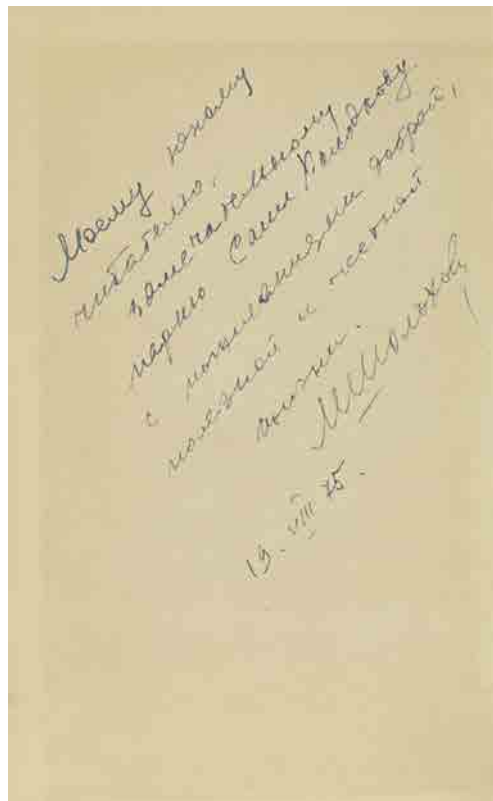 Моему юному
читателю,
замечательному
парню Саше
с пожеланиями доброй,
полезной и честной
жизни.
МШолохов
19. VIII 75.